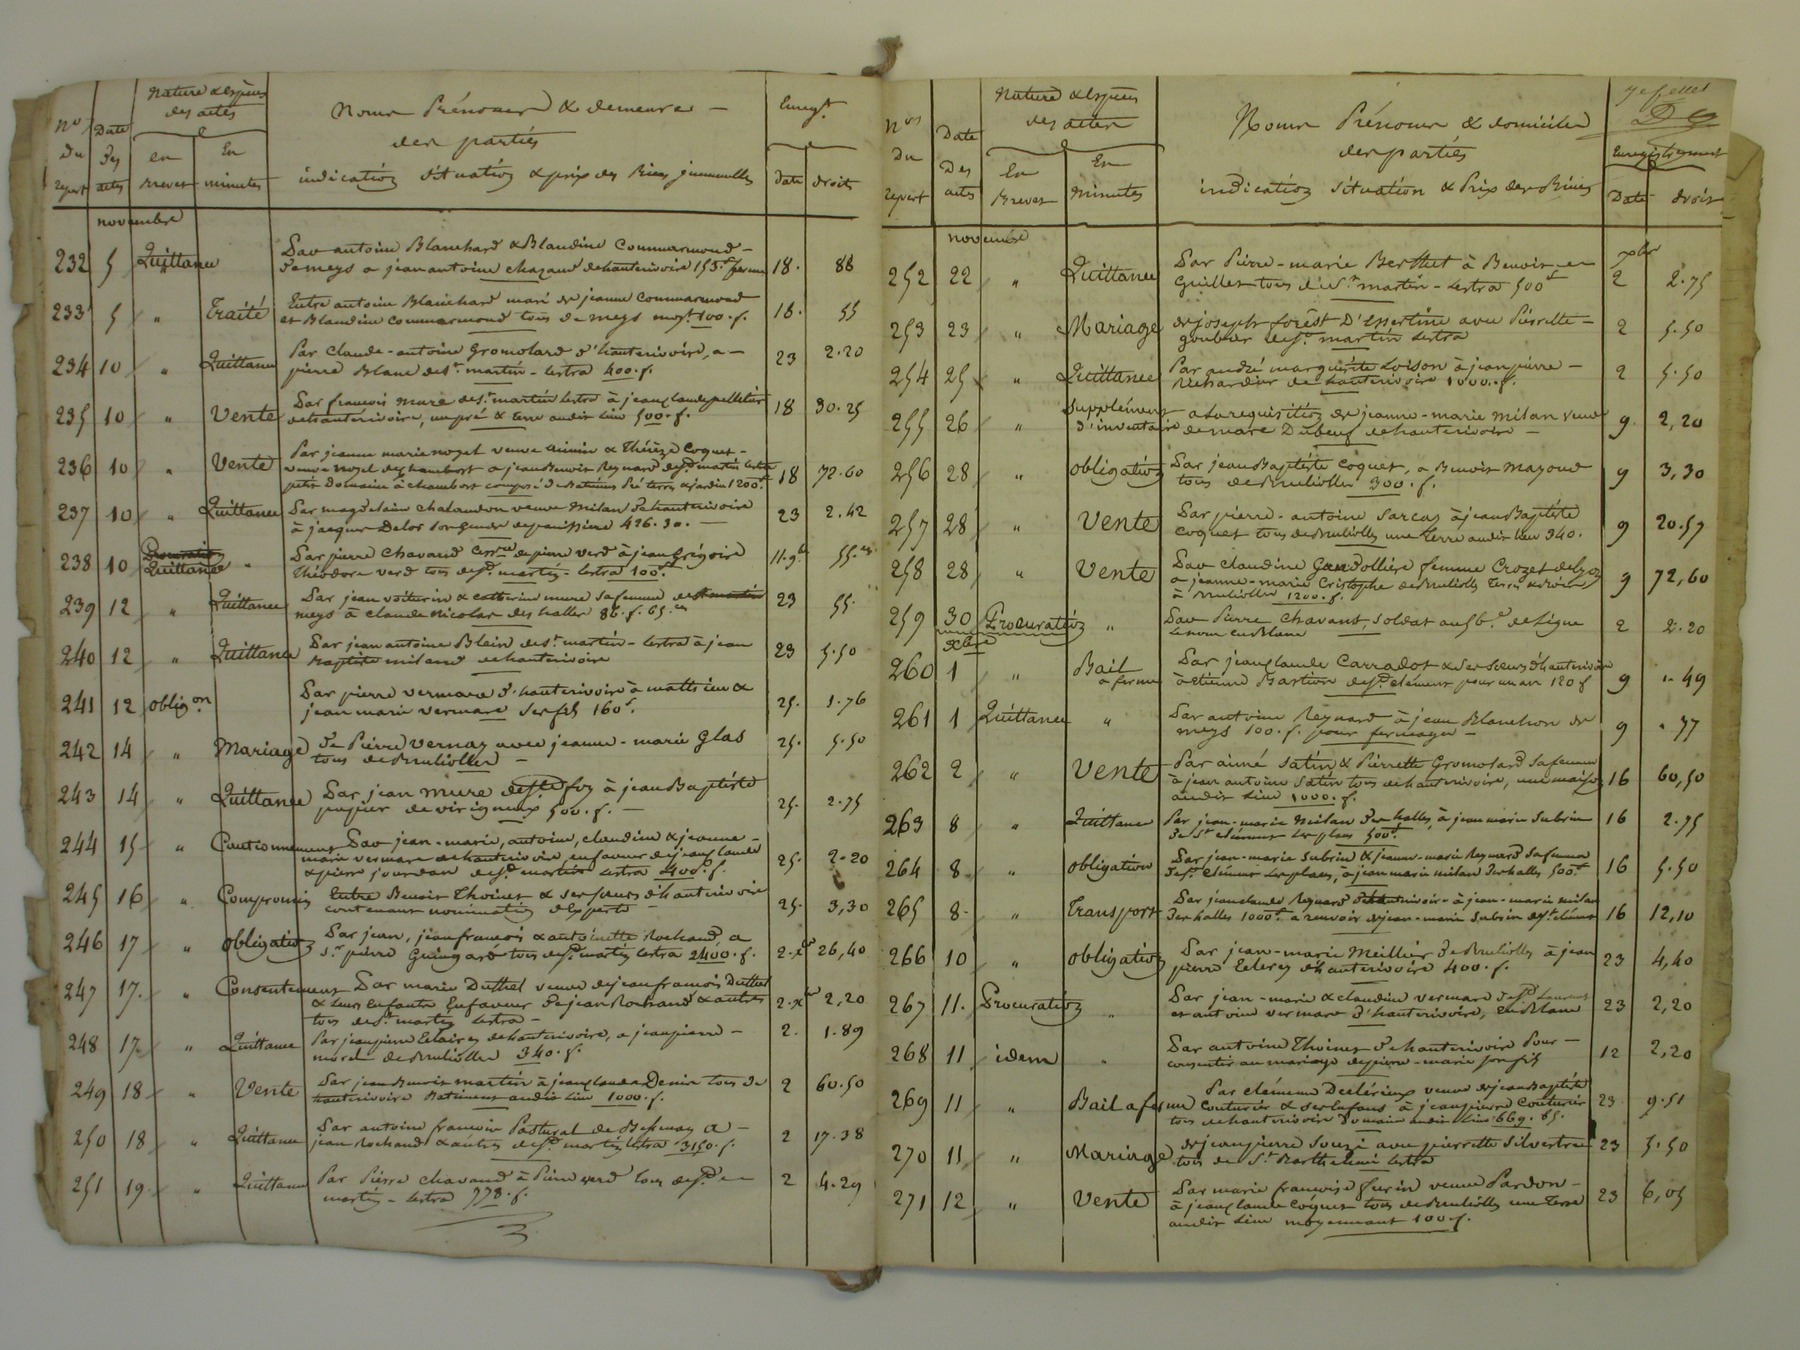 Nature & espèces
des actes
Noms Prénoms & demeures
des parties
indication situation & prix des Biens immeubles
Enregt
Nos
du
repert
Date
des
actes
en
brevet
En
minutes
date droits
novembre
232 5 Quittance Par antoine Blanchard & Blandine Commarmond
de meys a jean antoine chazaud dehauterivoire 155 f 18. 88
233 5 " Traité Entre antoine Blanchard mari de jeanne Commarmond
et Blandine Commarmond tous de meys moyt 100. f. 18. 55
234 10 " Quittance Par Claude-antoine Gromolard d'hauterivoire, a
pierre Blanc de st martin-lestra 400. f. 23 2.20
235 10 " Vente Par francois mure de st martin lestra à jean claude pelletier
dehauterivoire, un pré & terre audit lieu 500. f. 18 30.25
236 10 " Vente Par jeanne marie noyel veuve & Thérèze Coquet
veuve noyel de chambost a jean Benoit Reynard de st martin lestra
petit Domaine à chambost composé de Batimens Pré terres & jardin 1200 f 18 72.60
237 10 " Quittance Par magdelaine chalandon veuve milan d'hauterivoire
à jacques Delor de panissiere 426.30. 23 2.42
238 10 Quittance " Par pierre chavand de pierre verd à jean grégoire
théodore verd tous de st martin-lestra 100 f 11.9b 55.
239 12 " Quittance Par jean voiturin & catherine mure sa femme de
meys à claude nicolas des halles 86. f. 65. 23 55.
240 12 " Quittance Par jean antoine Blain de st martin-lestra à jean
Baptiste miland dehauterivoire 23 5.50
241 12 oblig.on Par pierre vermare d'hauterivoire à matthieu &
jean marie vermare ses fils 160 f. 25. 1.76
242 14 " Mariage de Pierre Vernay avec jeanne-marie Glas
tous de Brulliolles 25. 5.50
243 14 " Quittance Par jean mure de à jean Baptiste
papier de virigneux 500. f. 25. 2.75
244 15 " Cautionnement Par jean-marie, antoine, claudine & jeanne
marie vermare dehauterivoire, en faveur de jean claude
& pierre jourdan de st martin lestra 400. f. 25. 2.20
245 16 " Compromis Entre Benoit Thoinet & ses soeurs d'hauterivoire
contenant nomination d'Experts 25. 3,30
246 17 " obligation Par jean, jean francois & antoinette Rochand a
sr. pierre Guingard tous de st martin lestra 2400. f. 2.xbr 26,40
247 17. " Consentement Par marie Duthel veuve de jean francois Duthel
& leurs enfants en faveur de jean Rochand & autres
tous de st martin lestra 2.xbr 2,20
248 17. " Quittance Par jean pierre dehauterivoire, a jean pierre
de Brulliolles 340. f. 2. 1.89
249 18 " Vente Par jean Benoit martin à jean claude Denis tous de
hauterivoire Batiment audit lieu 1000. f. 2 60.50
250 18 " Quittance Par antoine francois Pastural de a
jean Rochand & autres de st martin lestra 3150. f. 2 17.38
251 19. " Quittance Par Pierre chavand à Pierre verd tous de st
martin-lestra 778. f. 2 4.29
Nos
du
repert
Date
Des
actes
Nature & espèces
des actes
En
Brevet
En
minutes
Noms Prénoms & domiciles
des parties
indication situation & Prix des Biens
7e feuillet
Enregistrement
Date droits
novembre xbre
252 22 " Quittance Par Pierre-marie Berthet à Benoit
Guillet tous de st martin-lestra 500 f 2 2.75
253 23 " Mariage de joseph forêst D'essertine avec Pierrette
goubier de st martin lestra 2 5.50
254 25 " Quittance Par andré marguerite Loison à jean pierre
Richardier de hauterivoire 1000. f. 2 5.50
255 26 " Supplément
d'inventaire a la requisition de jeanne-marie milan veuve
de marc Duboeuf dehauterivoire 9. 2,20
256 28 " obligation Par jean Baptiste Coquet, a Benoit Mazoud
tous de Brulliolles 300. f. 9 3,30
257 28 " Vente Par pierre-antoine Sarcay à jean Baptiste
Coquet tous de Brulliolles une terre audit lieu 340. 9 20.57
258 28 " Vente Par claudine Gandolliére femme Crozet de
a jeanne-marie Cristophe de Brulliolles terre &
à Brulliolles 1200. f. 9 72,60
259 30 Procuration " Par Pierre Chavant, soldat au 56e. de Ligne
le nom en Blanc 2 2.20
xbre
260 1 " Bail
a ferme Par jean claude Carradot & ses soeurs d'hauterivoire
à étienne Bastion de st clément pour un an 120 f 9 1.49
261 1 Quittance " Par antoine Reynard à jean Blanchon de
meys 100. f. pour fermages 9 .77
262 2 " Vente Par aimé satin & Pierrette Gromolard sa femme
à jean antoine Satin tous dehauterivoire, une maison
audit lieu 1000. f. 16 60,50
263 8 " Quittance Par jean-marie Milan des halles, à jean marie Subrin
de st clément les places 500 f 16 2.75
264 8. " obligation Par jean-marie Subrin & jeanne-marie Reynard sa femme
de st clément les places, a jean marie milan des halles 500 f 16 5.50
265 8. " Transport Par jean claude Reynard d'hauterivoire à jean-marie milan
des halles 1000 f. a recevoir de jean-marie Subrin de st clément 16 12,10
266 10 " obligation Par jean-marie Meillier de Brulliolles à jean
pierre d'hauterivoire 400. f. 23 4,40
267 11. Procuration " Par jean-marie & claudine vermare de st Laurent
et antoine vermare d'hauterivoire, en Blanc 23 2,20
268 11 idem " Par antoine Thoinet d'hauterivoire Pour
consentir au mariage de pierre-marie son fils 12 2,20
269 11 " Bail a ferme Par clémence Declérieux veuve de jean Baptiste
Couturier & ses enfans à jean pierre Couturier
tous dehauterivoire Domaine audit lieu 669. 85. 23 9.51
270 11 " Mariage de jean pierre Souzi avec pierrette Silvestre
tous de St Barthelemi lestra 23 5.50
271 12 " Vente Par marie francoise furin veuve Pardon
à jean claude Coquet tous de Brulliolles une terre
audit lieu moyennant 100 f. 23 6,05